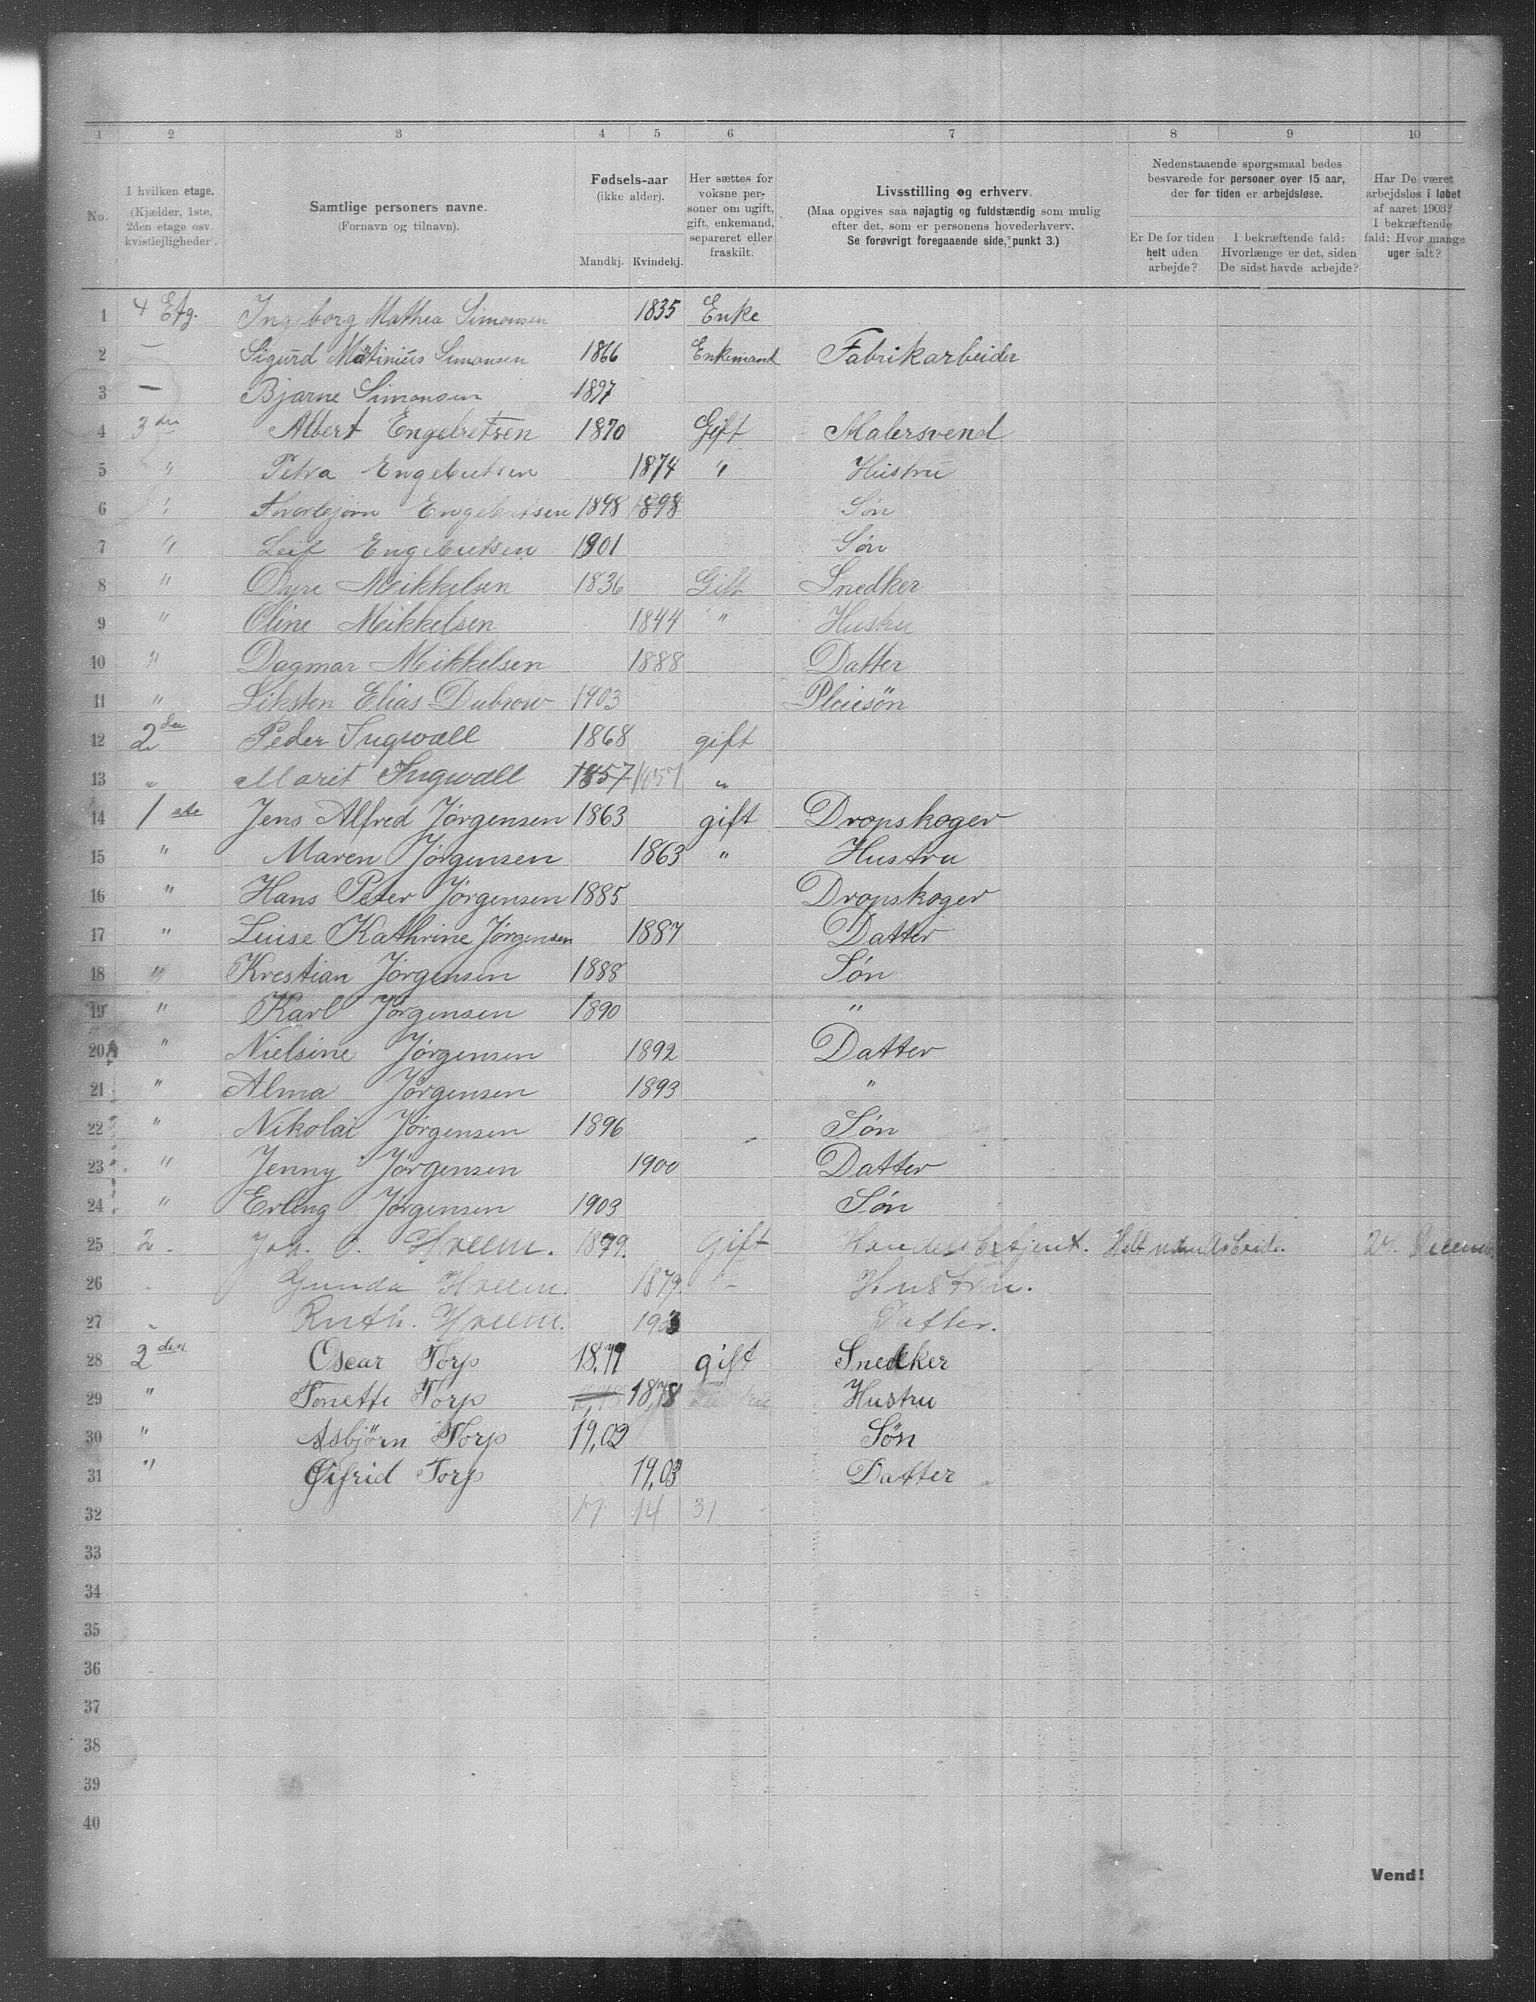 1 2 3 4 5 6 7 8 9 10
No. I hvilken etage. (Kjælder, 1ste, 2den etage osv. kvistlejligheder). Samtlige personers navne. (Fornavn og tilnavn). Fødsels-aar (ikke alder). Mandkj. Kvindekj. Her sættes for voksne personer om ugift, gift, enkemand, separeret eller fraskilt. Livsstilling og erhverv. (Maa opgives saa nøjagtig og fuldstændig som mulig efter det, som er personens hovederhverv. Se forøvrigt foregaaende side, punkt 3.) Nedenstaaende spørgsmaal bedes besvarede for personer over 15 aar, der for tiden er arbejdsløse. Er De for tiden helt uden arbejde? I bekræftende fald: Hvorlænge er det, siden De sidst havde arbejde? Har De været arbejdsløs i løbet af aaret 1903? I bekræftende fald: Hvor mange uger ialt?
1 4 Etg. Ingeborg Mathea Simonsen 1835 Enke
2 — Sigurd Matinius Simonsen 1866 Enkemand Fabrikarbeider
3 — Bjarne Simonsen 1897
4 3die Albert Engebretsen 1870 Gift Malersvend
5 " Petra Engebretsen 1874 " Hustru
6 " Thorbjørn Engebretsen 1898 1898 Søn
7 " Leif Engebretsen 1901 Søn
8 " Mikkelsen 1836 Gift Snedker
9 " Oline Mikkelsen 1844 " Hustru
10 " Dagmar Mikkelsen 1888 Datter
11 " Elias Dubrow 1903 Pleiesøn
12 2den Peder Ingwall 1868 gift
13 " Marit Ingwall 1857 1857 "
14 1ste Jens Alfred Jørgensen 1863 gift Dropskoger
15 " Maren Jørgensen 1863 " Hustru
16 " Hans Peter Jørgensen 1885 Dropskoger
17 " Luise Kathrine Jørgensen 1887 Datter
18 " Krestian Jørgensen 1888 Søn
19 " Karl Jørgensen 1890 "
20 " Nielsine Jørgensen 1892 Datter
21 " Alma Jørgensen 1893 "
22 " Nikolai Jørgensen 1896 Søn
23 " Jenny Jørgensen 1900 Datter
24 " Erling Jørgensen 1903 Søn
25 2. Joh. O. 1879. Gift Handelsbetjent. Helt uden Arbeide.
26 Gunda 1879. Hustru.
27 Ruth. 1903 Datter.
28 2den Oscar Torp 18,79 gift Snedker
29 " Tonette Torp 18,78 Hustru
30 " Asbjørn Torp 19,02 Søn
31 " Torp 19,03 Datter
32 17 14 31
33
34
35
36
37
38
39
40
Vend!